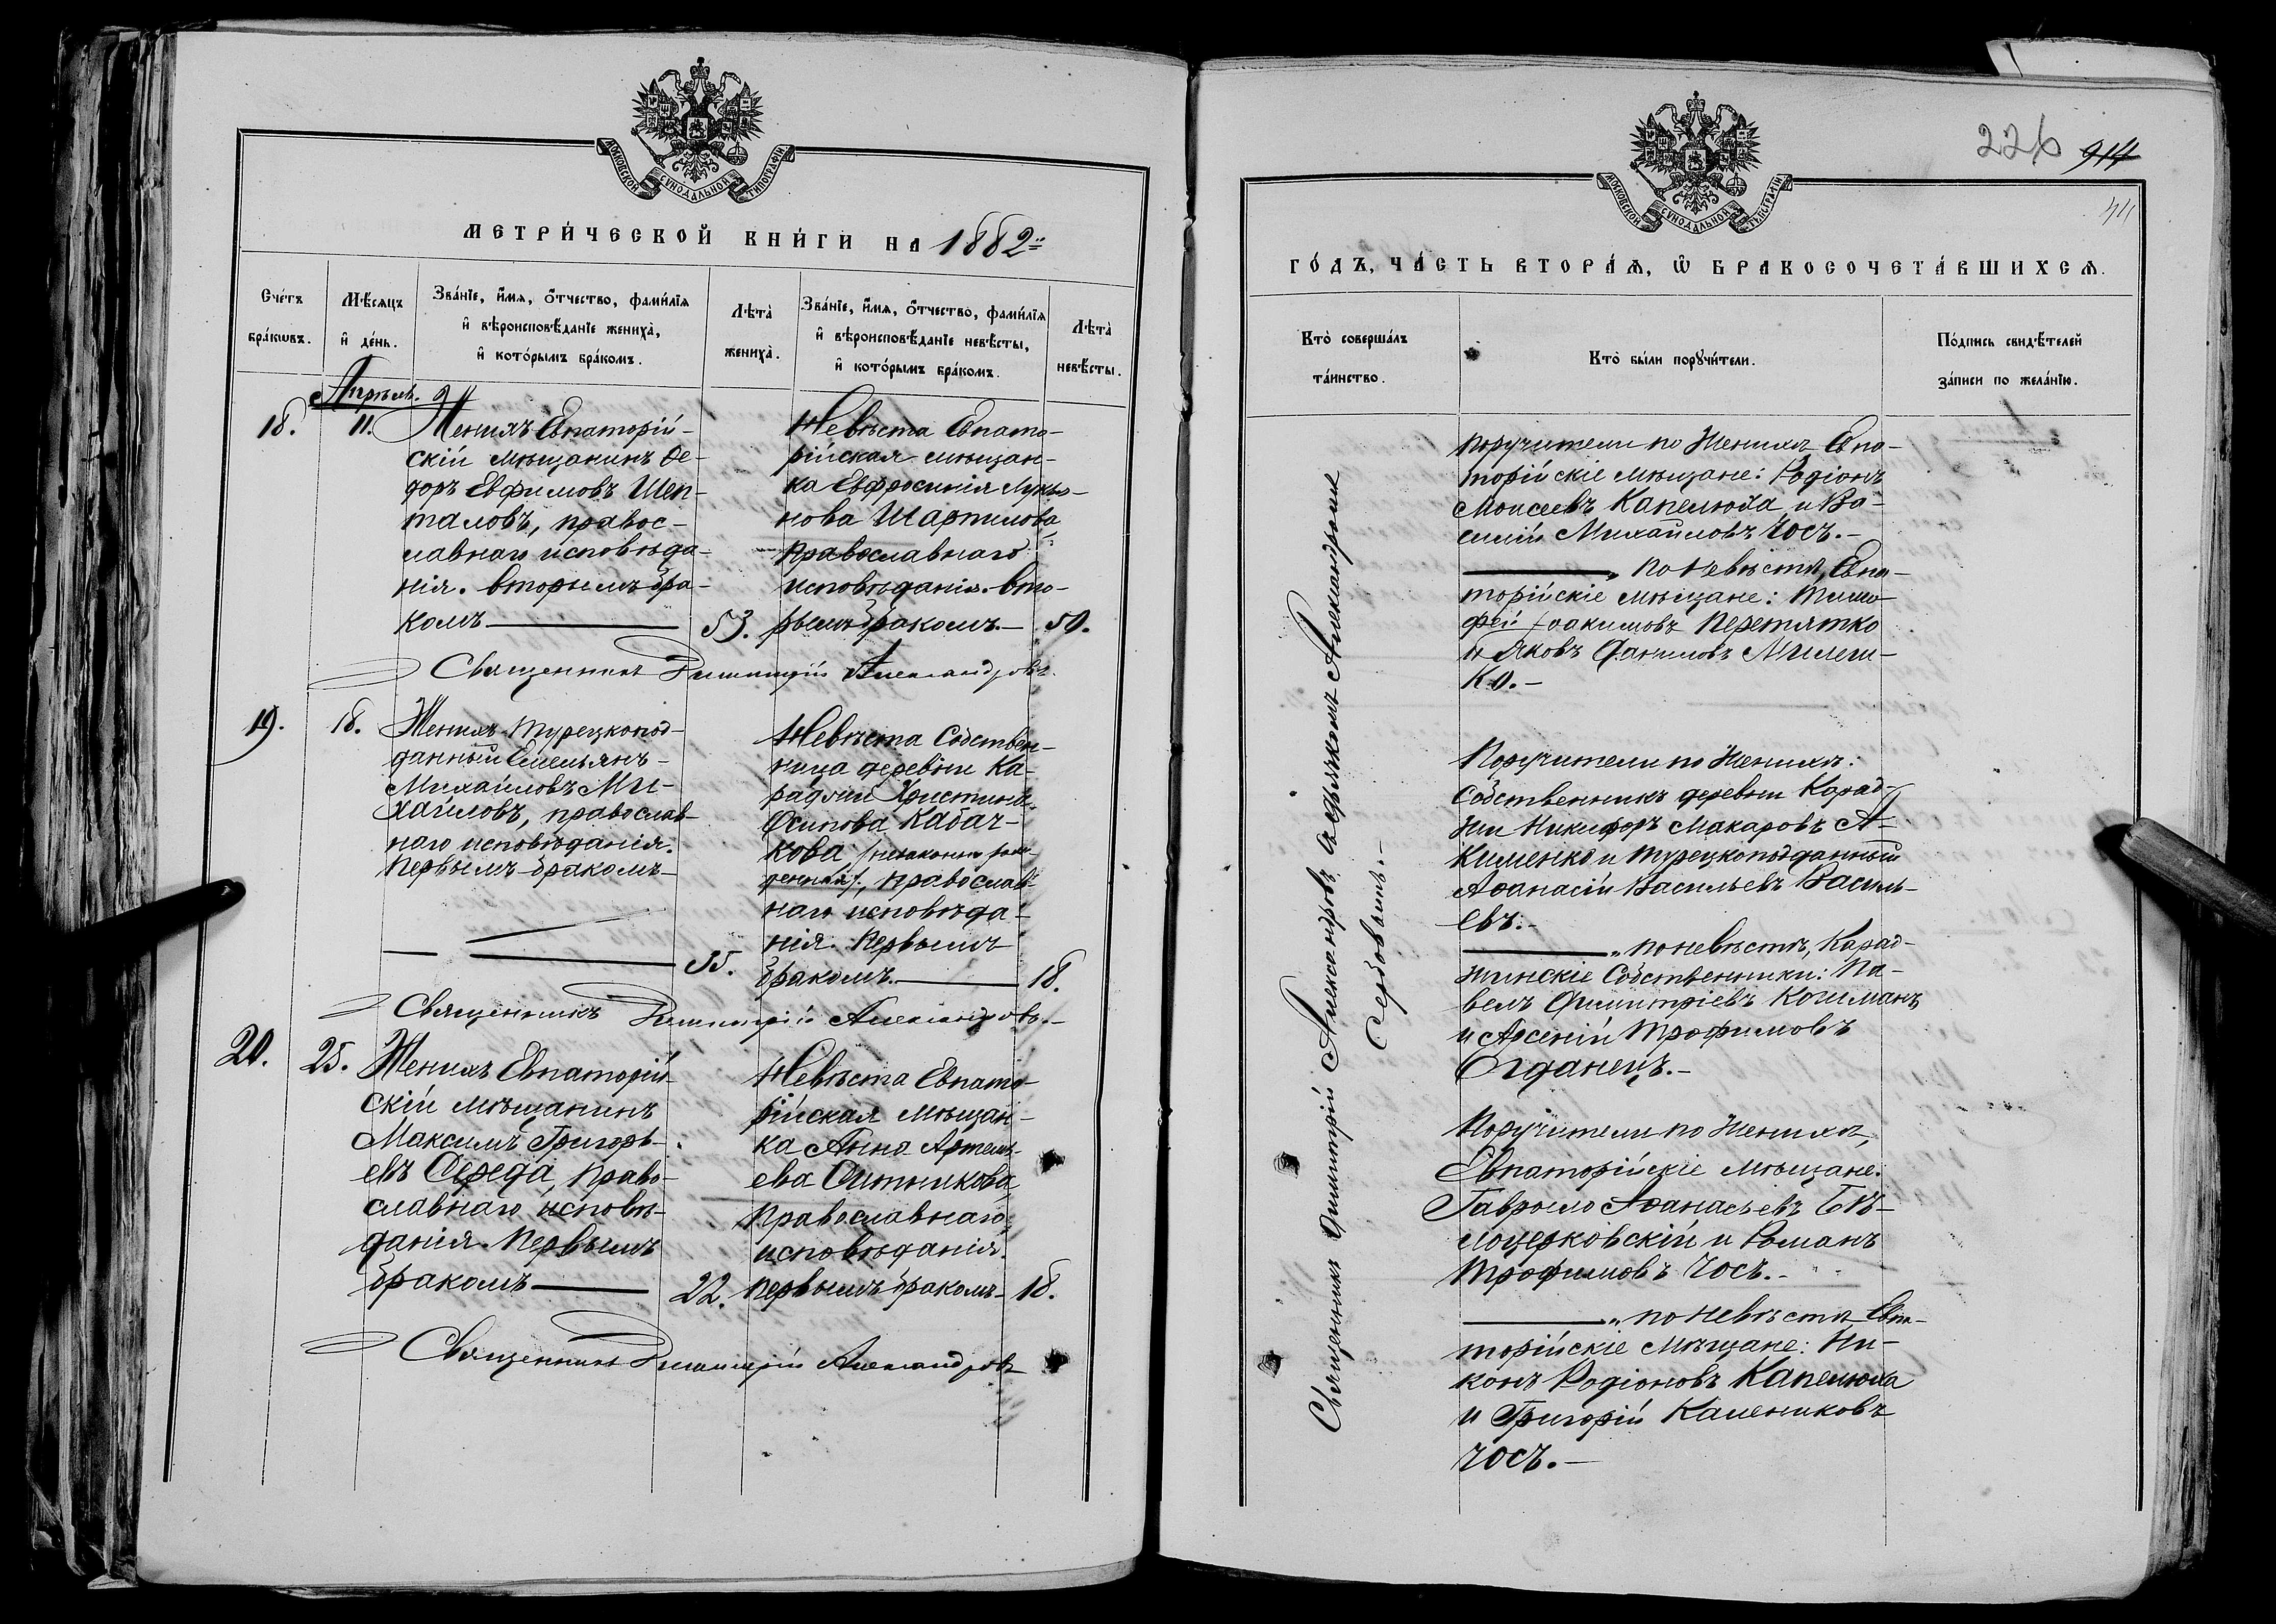 МОСКОВСКОЙ СѴНОДАЛЬНОЙ ТИПОГРАФІИ
МЕТРИ́ЧЕСКОЙ КНИ́ГИ НА 1882
Сче́тъ бра́кωвъ.
Мѣ́сѧцъ и҆ де́нь.
Зва́нїе, и҆́мѧ, о҆́тчество, фами́лїѧ
и҆ вѣроисповѣ́данїе жениха̀,
и҆ кото́рымъ бра́комъ.
Лѣта̀ жениха̀.
Зва́нїе, и҆́мѧ, о҆́тчество, фами́лїѧ
и҆ вѣроисповѣ́данїе невѣ́сты,
и҆ кото́рымъ бра́комъ.
Лѣта̀ невѣ́сты.
Апрѣль.
18.
11.
Женихъ Евпаторій-
скій мѣщанинъ Ѳе-
доръ Евфимовъ Шеп-
таловъ, правос-
лавнаго исповѣда-
нія. вторымъ бра-
комъ
53.
Невѣста Евпато-
рійская мѣщан-
ка Евфросинія Лукья-
нова Шарпилова
Православнаго
исповѣданія. вто-
рымъ бракомъ.
50.
Священникъ Димитрій Александровъ.
19.
18.
Женихъ Турецкопод-
данный Емельянъ
Михайловъ Ми-
хайловъ, православ-
наго исповѣданія.
Первымъ бракомъ
35.
Невѣста Собствен-
ница деревни Ка-
раджи Христина
Осипова Кабач-
кова /незаконно рож-
денная/, православ-
наго исповѣда-
нія. Первымъ
бракомъ.
18.
Священникъ Димитрій Александровъ.
20.
25.
Женихъ Евпаторій-
скій мѣщанинъ
Максимъ Григорь-
евъ Середа, право-
славнаго исповѣ-
данія. Первымъ
бракомъ
22.
Невѣста Евпато-
рійская мѣщан-
ка Анна Артемь-
ева Ситникова,
Православнаго
исповѣданія.
Первымъ бракомъ
18.
Священникъ Димитрій Александровъ
226 914
44
МОСКОВСКОЙ СѴНОДАЛЬНОЙ ТИПОГРАФІИ
ГО́ДЪ, ЧА́СТЬ ВТОРА́Ѧ, Ѡ҆ БРАКОСОЧЕТА́ВШИХСѦ.
Кто̀ соверша́лъ
та́инство.
Кто̀ бы́ли порꙋчи́тели.
По́дпись свидѣ́телей
за́писи по жела́нїю.
Священникъ Димитрій Александровъ съ дьякомъ Александромъ
Сербовымъ.
Поручители по Женихѣ Евпа-
торійскіе мѣщане: Родіонъ
Моисеевъ Капелюха и Ва-
силій Михайловъ Чосъ.
" по невѣстѣ, Евпа-
торійскіе мѣщане: Тимо-
фей Іоакимовъ Перетятко
и Яковъ Даниловъ Милеш-
ко.
Поручители по Женихѣ:
Собственникъ деревни Карад-
жи Никифоръ Макаровъ А-
кименко и Турецкоподданный
Аѳанасій Васильевъ Василь-
евъ.
" по невѣстѣ, Карад-
жинскіе Собственники: Па-
велъ Димитріевъ Кошманъ
и Арсеній Трофимовъ
Огданецъ.
Поручители по Женихѣ,
Евпаторійскіе мѣщане:
Гавріило Аѳанасьевъ Бѣ-
лоцерковскій и Романъ
Трофимовъ Чосъ.
" по невѣстѣ Евпа-
торійскіе мѣщане: Ни-
конъ Родіоновъ Капелюха
и Григорій Калениковъ
Чосъ.